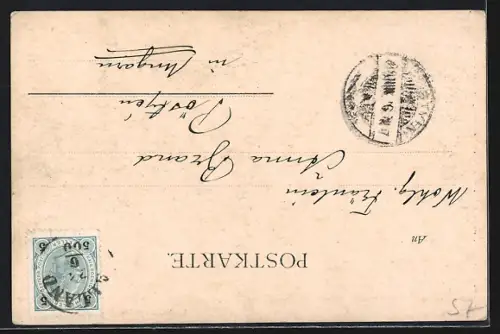 POSTKARTE.
An
Wohlg. Fräulein
Anna Brand
Pöstyén
in Ungarn
5
5
AND
6
900
57